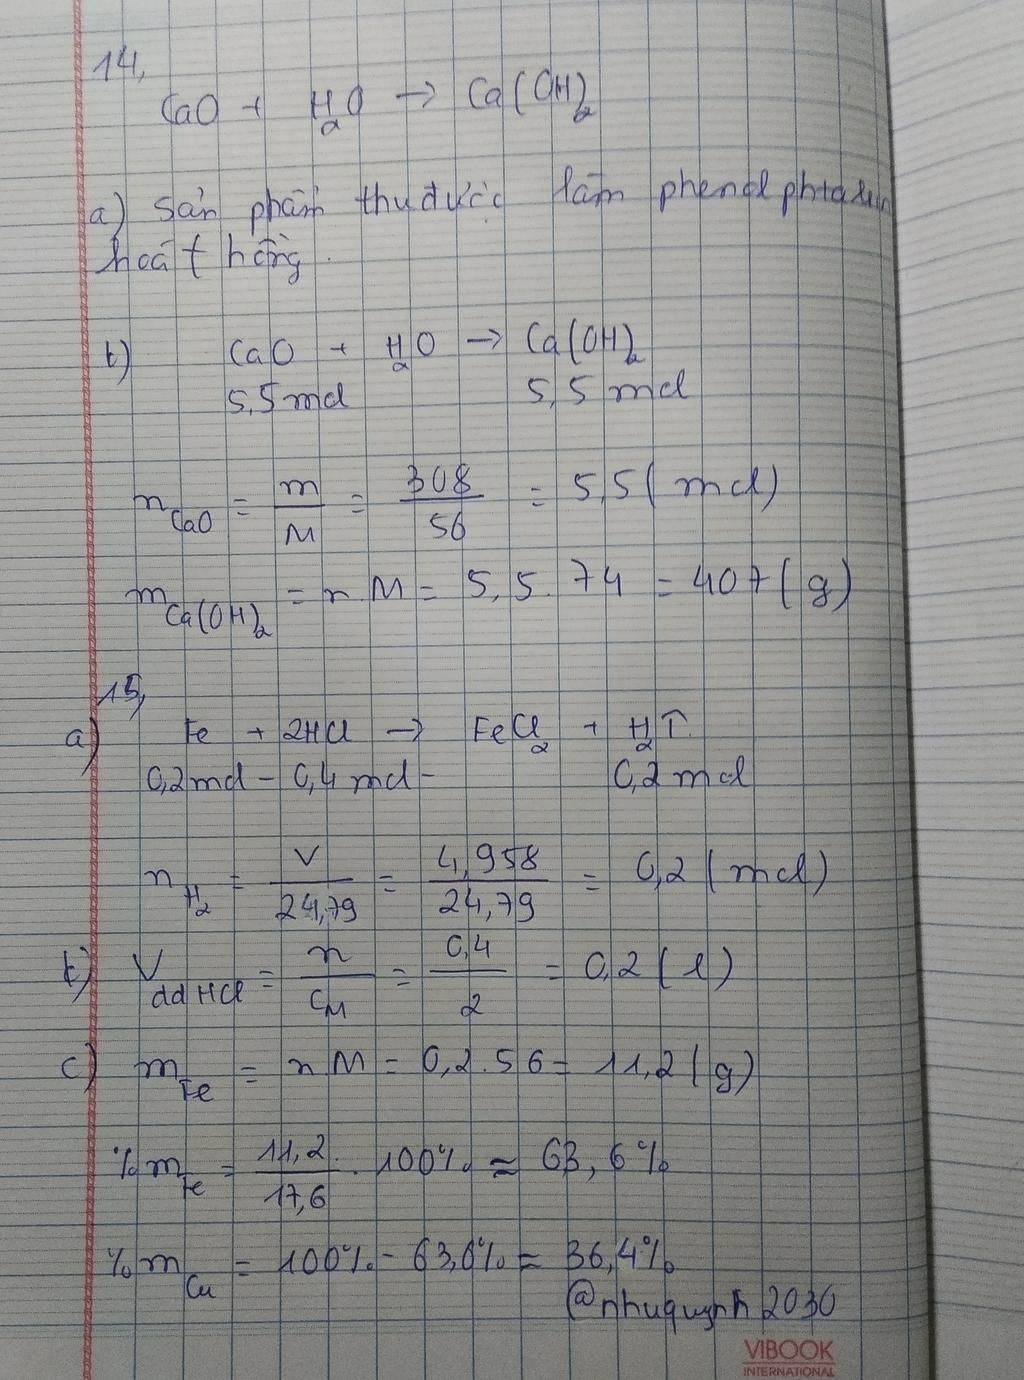 14,
CaO + H₂O → Ca(OH)₂
a) Sản phẩm thu được làm phenolphtalein
hoá t hồng.
b) CaO + H₂O → Ca(OH)₂
5,5 mol 5,5 mol
n CaO = m/M = 308/56 = 5,5 (mol)
m Ca(OH)₂ = n.M = 5,5.74 = 407 (g)
15,
a) Fe + 2HCl → FeCl₂ + H₂↑.
0,2 mol - 0,4 mol - 0,2 mol
n H₂ = V/24,79 = 4,958/24,79 = 0,2 (mol)
b) V dd HCl = n/CM = 0,4/2 = 0,2 (l)
c) m Fe = n.M = 0,2.56 = 11,2 (g)
% m Fe = 11,2/17,6 . 100% ≈ 63,6%
% m Cu = 100% - 63,6% = 36,4%
@nhuquynh2030
VIBOOK
INTERNATIONAL